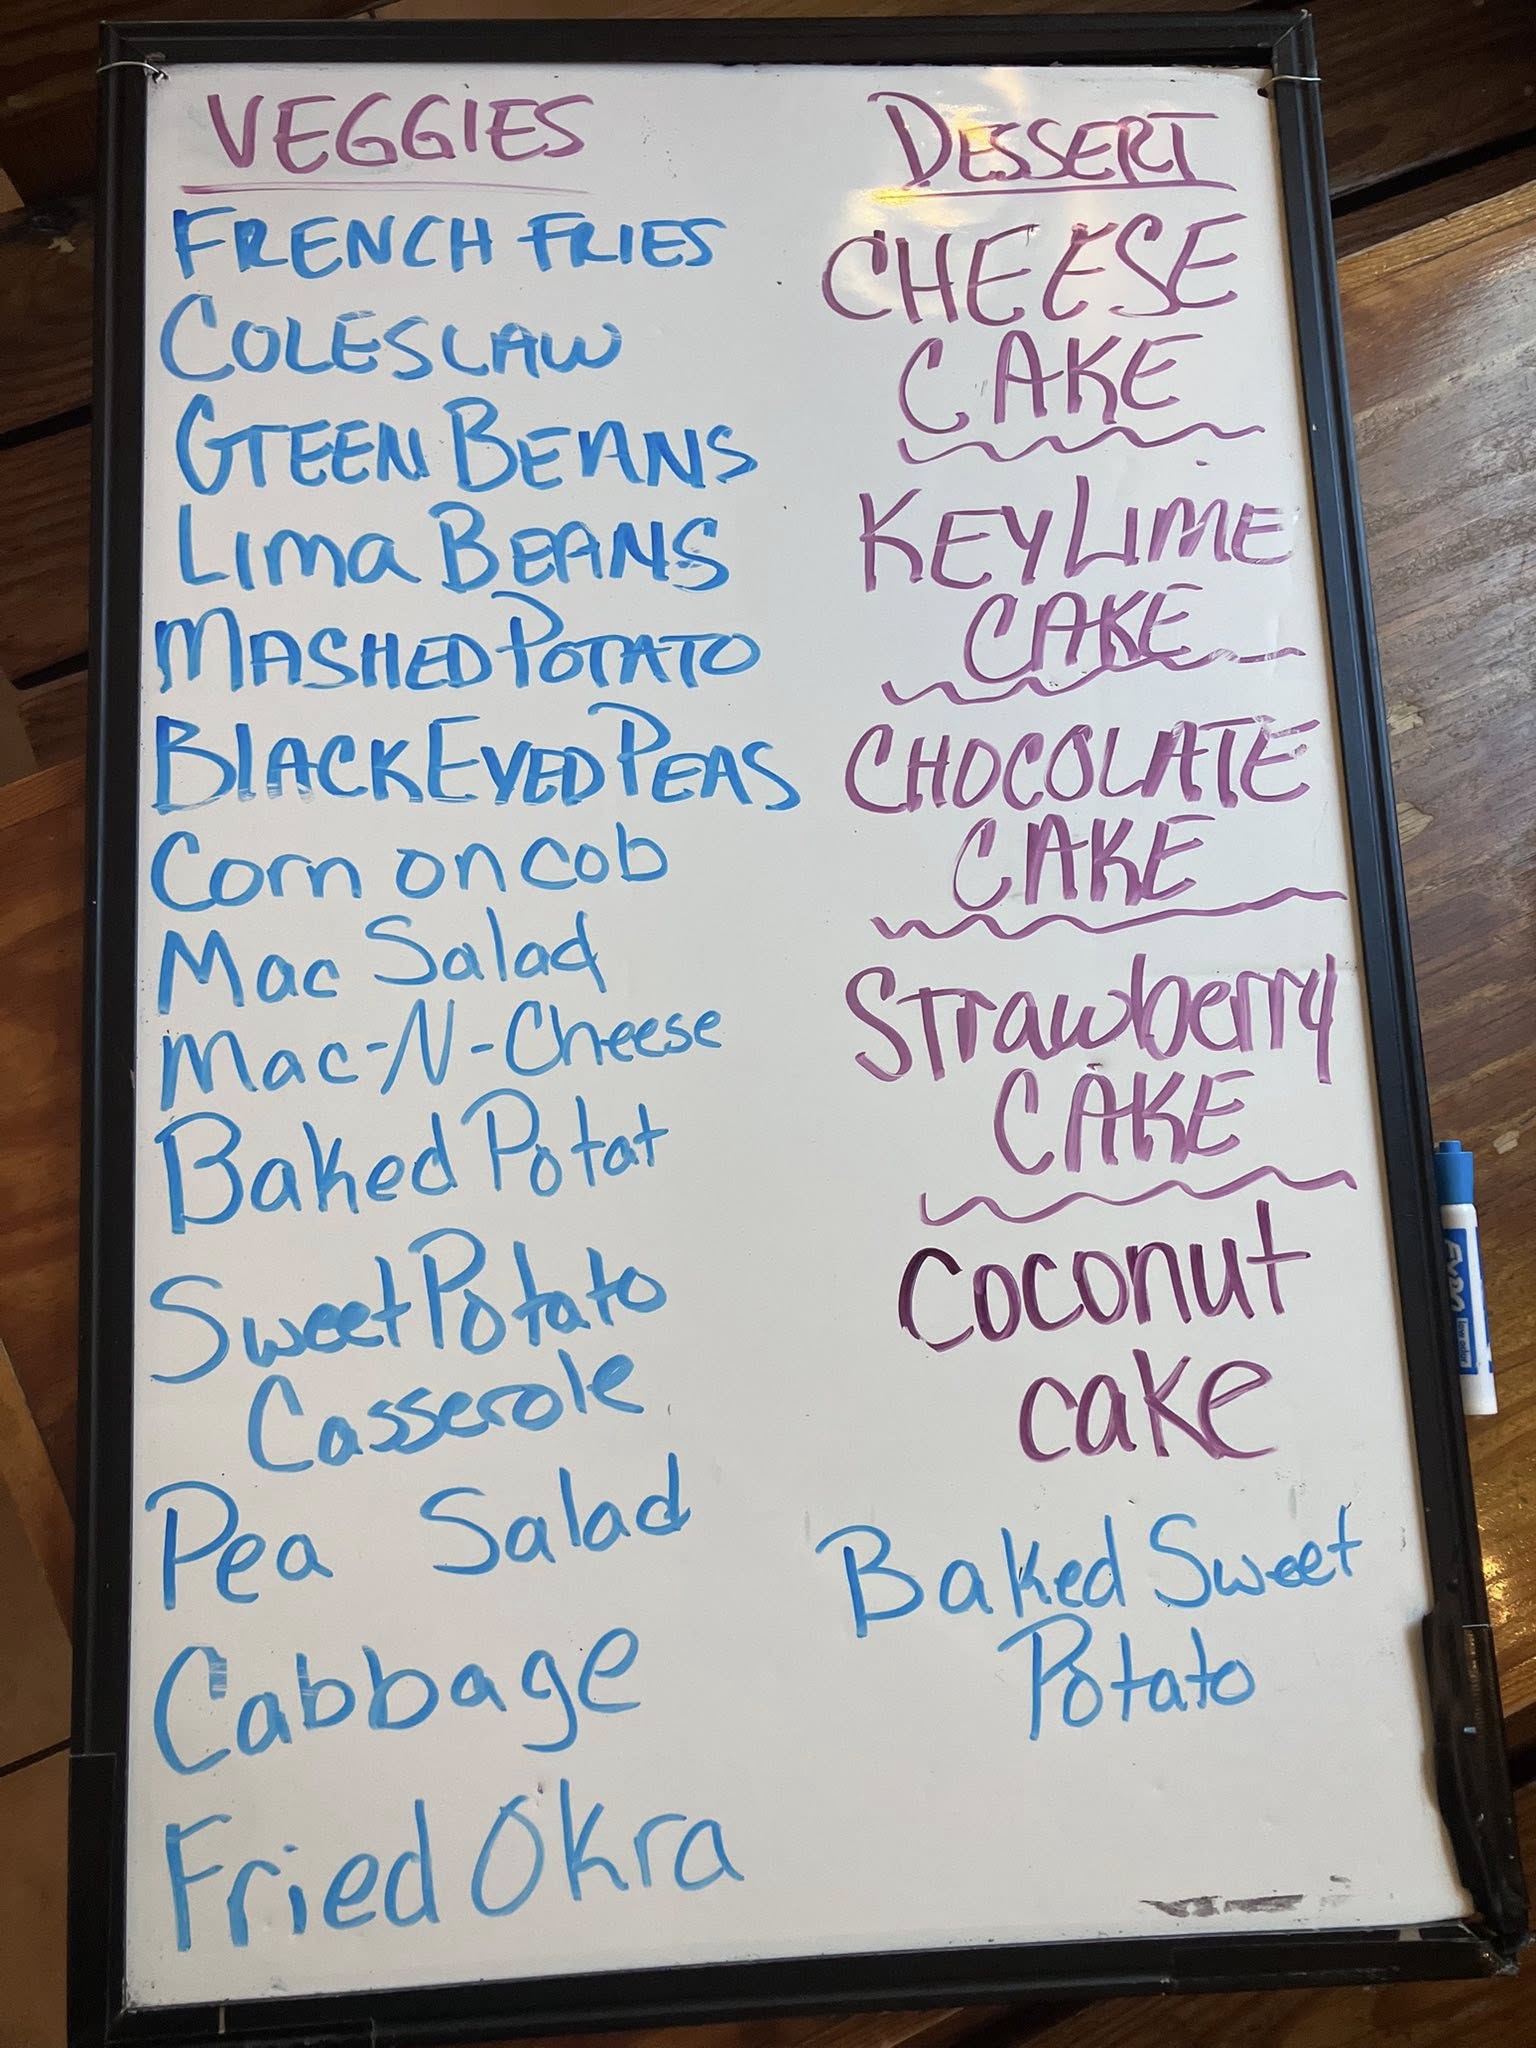 VEGGIES
FRENCH FRIES
COLESLAW
GTEEN BEANS
LIMA BEANS
MASHED POTATO
BLACK EYED PEAS
Corn on cob
Mac Salad
Mac-N-Cheese
Baked Potat
Sweet Potato
Casserole
Pea Salad
Cabbage
Fried Okra
DESSERT
CHEESE
CAKE
KEY LIME
CAKE
CHOCOLATE
CAKE
Strawberry
CAKE
Coconut
cake
Baked Sweet
Potato
EXPO
low odor